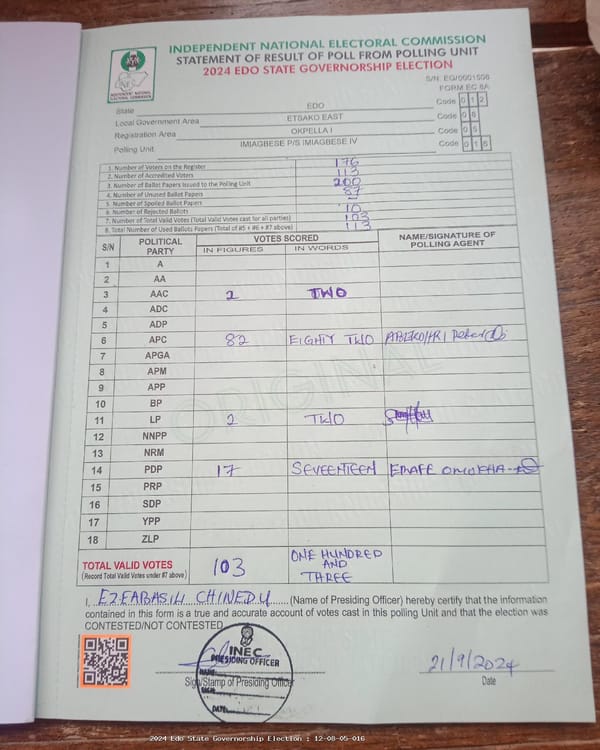 INDEPENDENT NATIONAL ELECTORAL COMMISSION
STATEMENT OF RESULT OF POLL FROM POLLING UNIT
2024 EDO STATE GOVERNORSHIP ELECTION
INEC
INDEPENDENT NATIONAL
ELECTORAL COMMISSION
S/N: EG/0001508
FORM EC 8A
State EDO Code 0 1 2
Local Government Area ETSAKO EAST Code 0 8
Registration Area OKPELLA I Code 0 5
Polling Unit IMIAGBESE P/S IMIAGBESE IV Code 0 1 6
1. Number of Voters on the Register 176
2. Number of Accredited Voters 113
3. Number of Ballot Papers Issued to the Polling Unit 200
4. Number of Unused Ballot Papers 87
5. Number of Spoiled Ballot Papers
6. Number of Rejected Ballots 10
7. Number of Total Valid Votes (Total Valid Votes cast for all parties) 103
8. Total Number of Used Ballots Papers (Total of #5 + #6 + #7 above) 113
S/N POLITICAL PARTY VOTES SCORED NAME/SIGNATURE OF POLLING AGENT
IN FIGURES IN WORDS
1 A
2 AA
3 AAC 2 TWO
4 ADC
5 ADP
6 APC 82 EIGHTY TWO
7 APGA
8 APM
9 APP
10 BP
11 LP 2 TWO
12 NNPP
13 NRM
14 PDP 17 SEVENTEEN
15 PRP
16 SDP
17 YPP
18 ZLP
ORIGINAL
TOTAL VALID VOTES 103 ONE HUNDRED AND THREE
(Record Total Valid Votes under #7 above)
I, EZEABASILI CHINEDU (Name of Presiding Officer) hereby certify that the information
contained in this form is a true and accurate account of votes cast in this polling Unit and that the election was
CONTESTED/NOT CONTESTED
INEC
PRESIDING OFFICER
NAME
SIGN
DATE
Sign/Stamp of Presiding Officer
21/9/2024
Date
2024 Edo State Governorship Election : 12-08-05-016